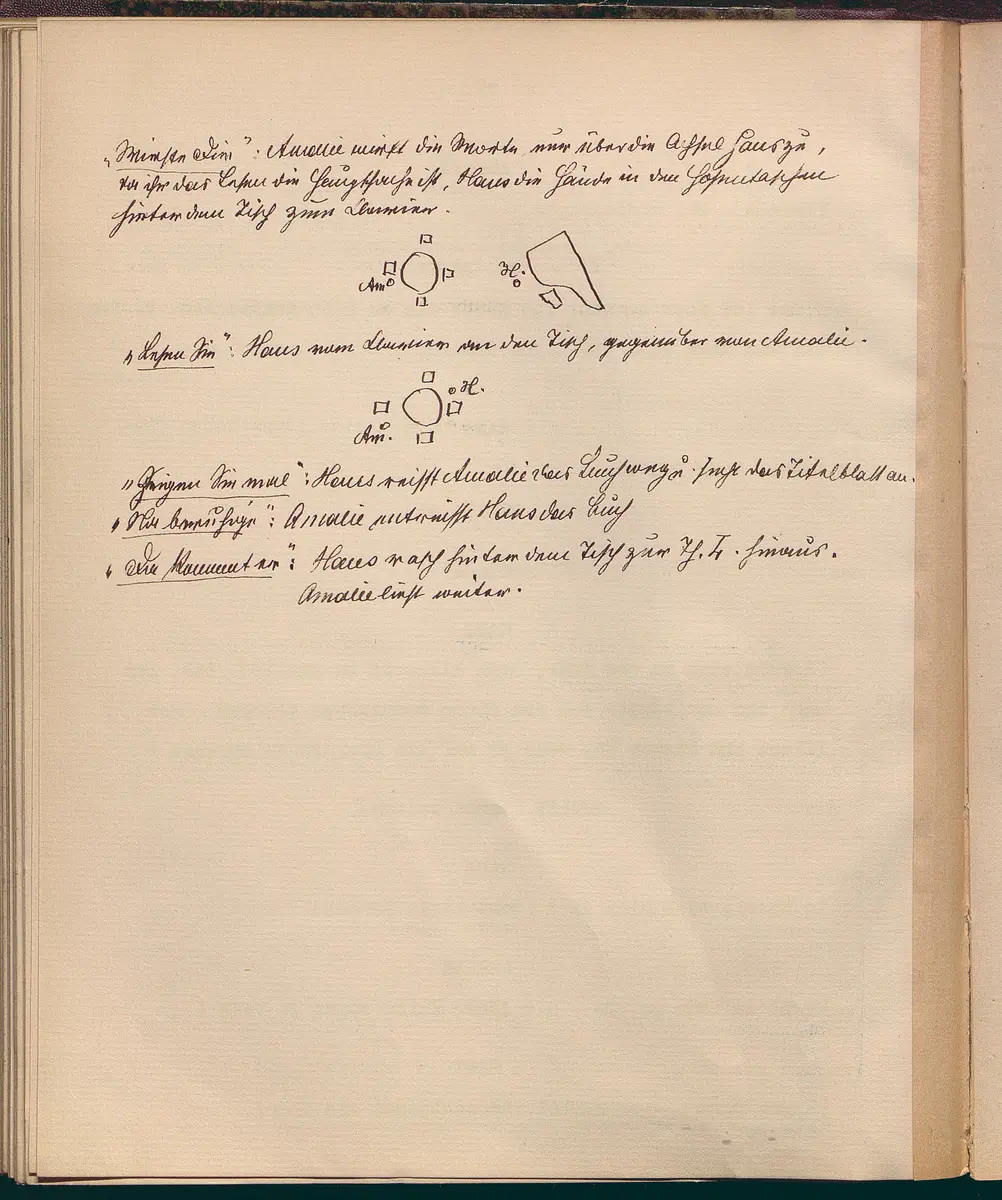 „Wirste Dir": Amalie wirft die Worte nur über die Achsel Hans zu,
da ihr das Lesen die Hauptsache ist, Hans die Hände in den Hosentaschen
hinter dem Tisch zum Clavier.
Am H.
„Lesen Sie": Hans vom Clavier an den Tisch, gegenüber von Amalie.
H.
Am.
„Zeigen Sie mal": Hans reisst Amalie das Buch weg u. sieht das Titelblatt an.
„Na beruhige": Amalie entreisst Hans das Buch
„Da kommt er": Hans rasch hinter dem Tisch zur Th. L. hinaus.
Amalie liest weiter.